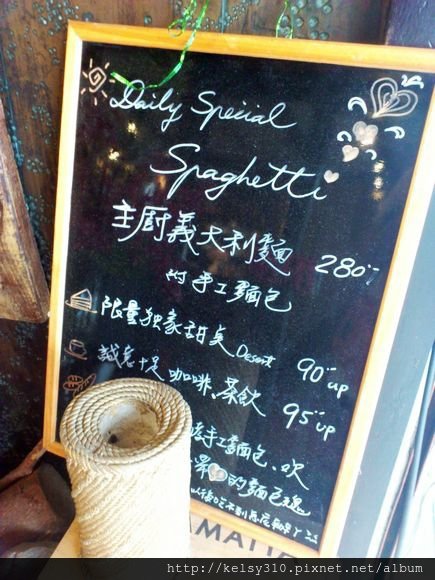 Daily Special
Spaghetti
主廚義大利麵 280
附手工麵包
限量独家甜点 Desert 90 up
誠意十足 咖啡、茶飲 95 up
手工麵包、吹
的麵包塊
AMA
http://kelsy310.pixnet.net/album